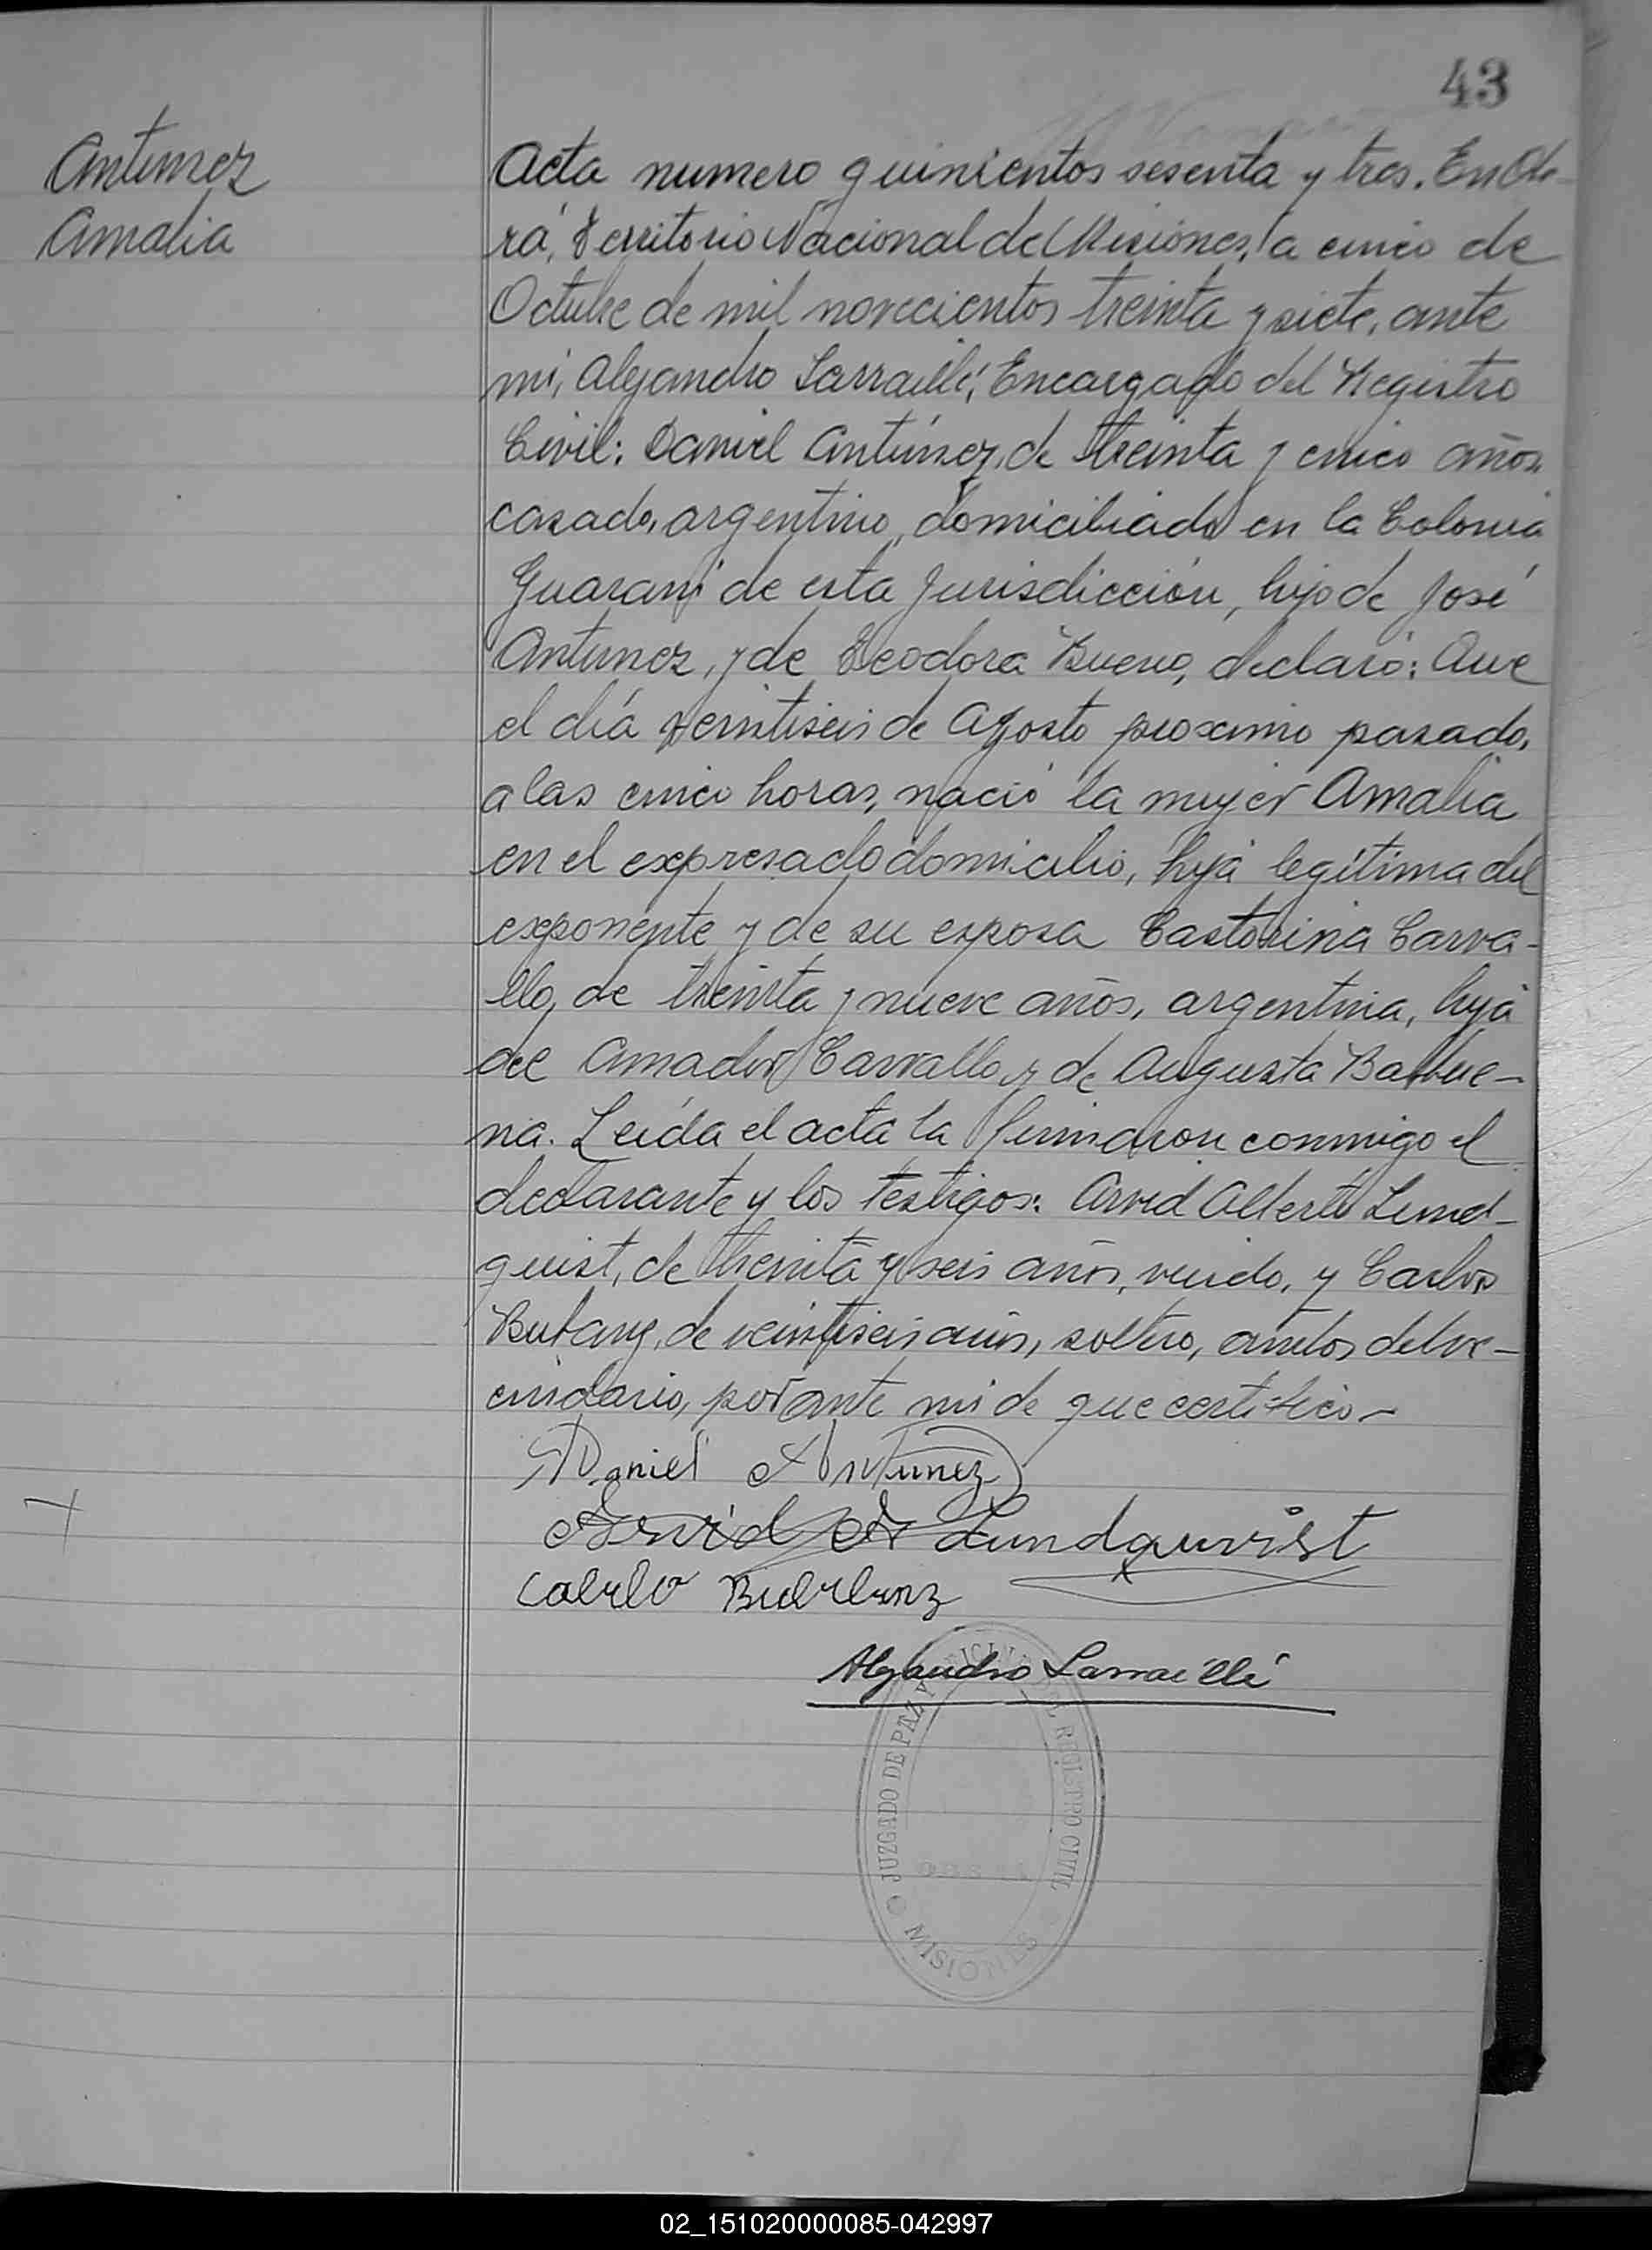 43
Antunez
Amalia
Acta numero quinientos sesenta y tres. En Obe-
rá, Territorio Nacional de Misiones, a cinco de
Octubre de mil novecientos treinta y siete, ante
mi, Alejandro Larraillé, Encargado del Registro
Civil: Daniel Antúnez, de treinta y cinco años,
casado, argentino, domiciliado en la Colonia
Guaraní de esta Jurisdicción, hijo de José
Antunez, y de Teodora Bueno, declaró: Que
el día veintiseis de Agosto proximo pasado,
a las cinco horas, nació la mujer Amalia
en el expresado domicilio, hija legítima del
exponente y de su esposa Castorina Carva-
llo, de treinta y nueve años, argentina, hija
de Amador Carvallo, y de Augusta Balbue-
na. Leída el acta la firmaron conmigo el
declarante y los testigos: Arvid Alberto Lund-
quist, de treinta y seis años, viudo, y Carlos
de veintiseis años, soltero, ambos del ve-
cindario, por ante mi de que certifico-
Daniel Antunez
Arvid A Lundquvist
Alejandro Larraillé
JUZGADO DE PAZ Y OFICINA DEL REGISTRO CIVIL
MISIONES
02_151020000085-042997